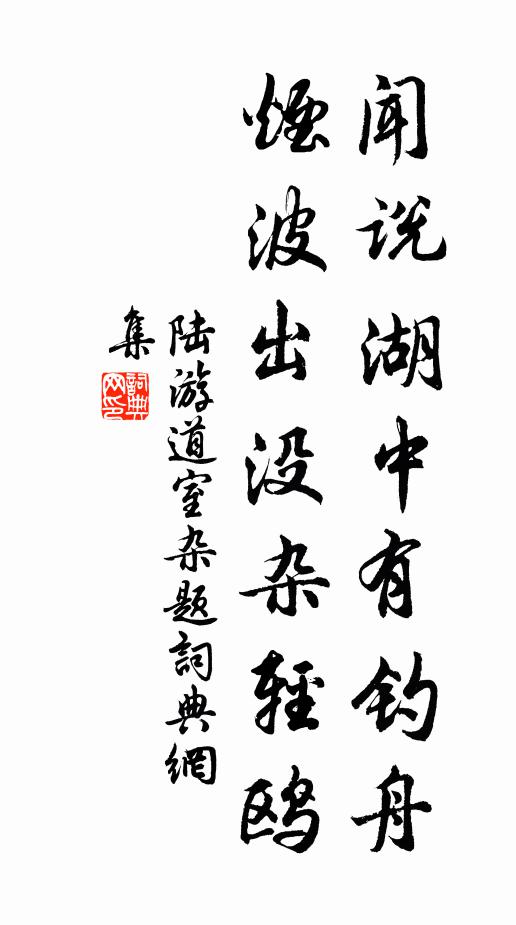 闻说湖中有钓舟
煙波出没杂輕鸥
陆游道室杂题詞典網
集
詞典网印